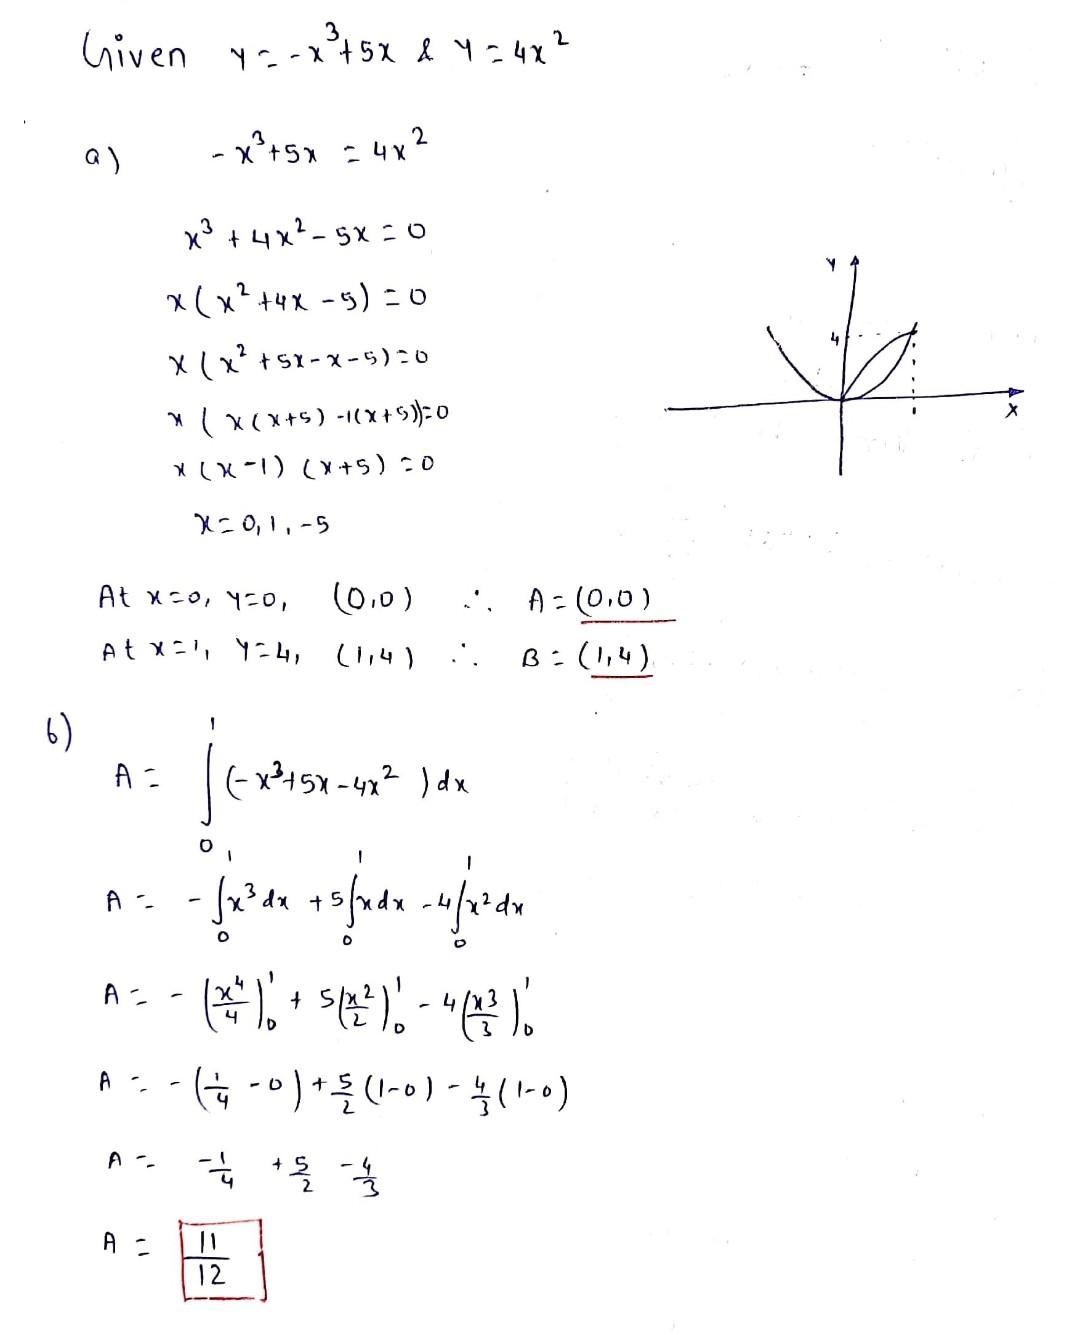 Given y = -x³+5x & y = 4x²
a) -x³+5x = 4x²
x³ + 4x² - 5x = 0
x(x² + 4x - 5) = 0
x(x² + 5x - x - 5) = 0
x(x(x+5) -1(x+5)) = 0
x(x-1)(x+5) = 0
x = 0, 1, -5
Y
4
X
At x=0, y=0, (0,0) ∴ A = (0,0)
At x=1, y=4, (1,4) ∴ B = (1,4)
b)
A = ∫₀¹ (-x³+5x-4x²) dx
A = -∫₀¹ x³ dx + 5∫₀¹ x dx - 4∫₀¹ x² dx
A = -(x⁴/4)₀¹ + 5(x²/2)₀¹ - 4(x³/3)₀¹
A = -(1/4 - 0) + 5/2 (1-0) - 4/3 (1-0)
A = -1/4 + 5/2 - 4/3
A = 11/12